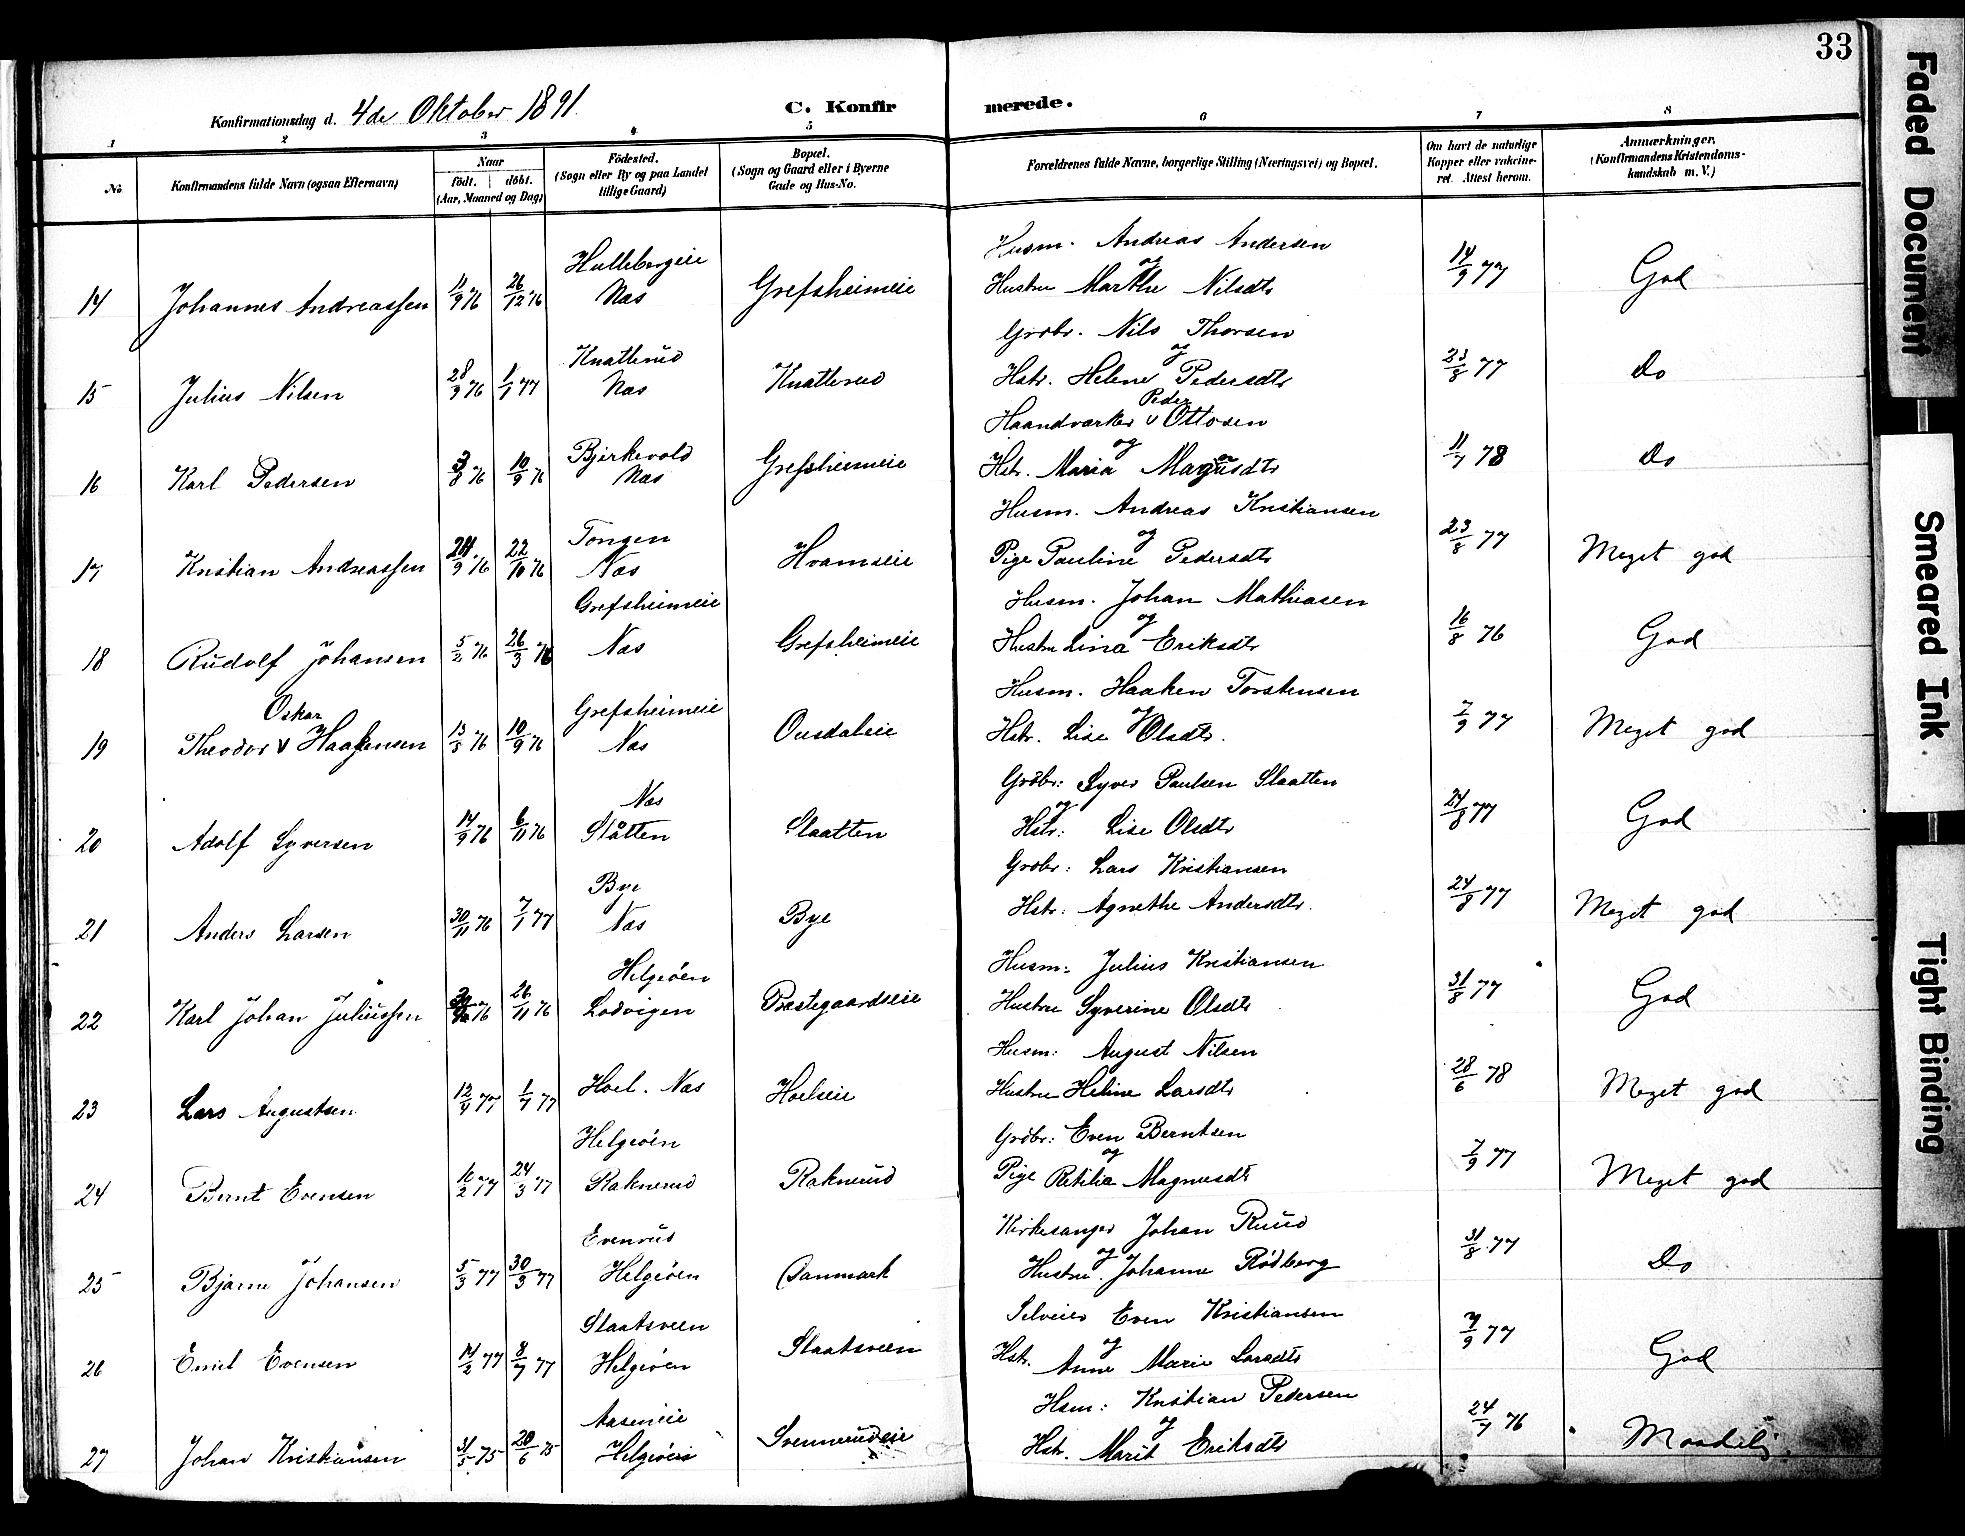 33
Konfirmationsdag d. 4de Oktober 1891.
C. Konfirmerede.
1 2 3 4 5 6 7 8
No
Konfirmandens fulde Navn (ogsaa Efternavn)
Naar
födt. döbt.
(Aar, Maaned og Dag)
Födested.
(Sogn eller By og paa Landet
tillige Gaard)
Bopæl.
(Sogn og Gaard eller i Byerne
Gade og Hus-No.
Forældrenes fulde Navne, borgerlige Stilling (Næringsvei) og Bopæl.
Om havt de naturlige
Kopper eller vakcine-
ret. Attest herom.
Anmærkninger.
(Konfirmandens Kristendoms-
kundskab m. V.)
Hullebergeie Husm. Andreas Andersen
og
14 Johannes Andreassen 11/9 76 26/12 76 Næs Grefsheimeie Hustru Marthe Nilsdtr 14/9 77 God
Knatterud Grdbr. Nils Thorsen
og
15 Julius Nilsen 28/9 76 1/1 77 Næs Knatterud Hstr. Helene Pedersdtr 23/8 77 Do
Peder
Bjerkevold Haandværker v Ottosen
og
16 Karl Pedersen 3/8 76 10/9 76 Næs Grefsheimeie Hstr. Maria Magnusdtr 11/7 78 Do
Tongen Husm. Andreas Kristiansen
og
17 Kristian Andreassen 24/9 76 22/10 76 Næs Hvamseie Pige Pauline Pedersdtr 23/8 77 Meget god
Grefsheimeie Husm. Johan Mathiasen
og
18 Rudolf Johansen 5/2 76 26/3 76 Næs Grefsheimeie Hustru Lina Eriksdtr 16/8 76 God
Oskar
Grefsheimeie Husm. Haaken Torstensen
og
19 Theodor v Haakensen 13/5 76 10/9 76 Næs Ousdaleie Hstr. Lise Olsdtr. 7/9 77 Meget god
Næs Grdbr: Syver Paulsen Slaatten
og
20 Adolf Syversen 14/9 76 6/11 76 Slåtten Slaatten Hstr: Lise Olsdtr 24/8 77 God
Bye Grdbr: Lars Kristiansen
21 Anders Larsen 30/11 76 7/1 77 Næs Bye Hstr: Agnethe Andersdtr. 24/8 77 Meget god
Helgeöen Husm: Julius Kristiansen
22 Karl Johan Juliussen 76 26/11 76 Lodvigen Præstegaardseie Hustru Syverine Olsdtr 31/8 77 God
Husm: August Nilsen
23 Lars Augustsen 12/4 77 1/7 77 Hoel. Næs Hoelseie Hustru Heline Larsdtr 28/6 78 Meget god
Helgeöen Grdbr: Even Berntsen
og
24 Bernt Evensen 16/2 77 24/3 77 Raknerud Raknerud Pige Retilia Magnusdtr 7/9 77 Meget god
Evenrud Kirkesanger Johan Ruud
og
25 Bjarne Johansen 5/3 77 30/3 77 Helgeöen Danmark Hustru. Johanne Rödberg 31/8 77 Do
Slaatsveen Selveier Even Kristiansen
og
26 Emil Evensen 14/2 77 8/7 77 Helgeöen Slaatsveen Hstr. Anne Marie Larsdtr 7/9 77 God
Aaseneie Hsm: Kristian Pedersen
og
27 Johan Kristiansen 31/5 75 20/6 75 Helgeöen Svennerudeie Hstr. Marit Eriksdtr 24/7 76 Maadelig.
Faded Document
Smeared Ink.
Tight Binding